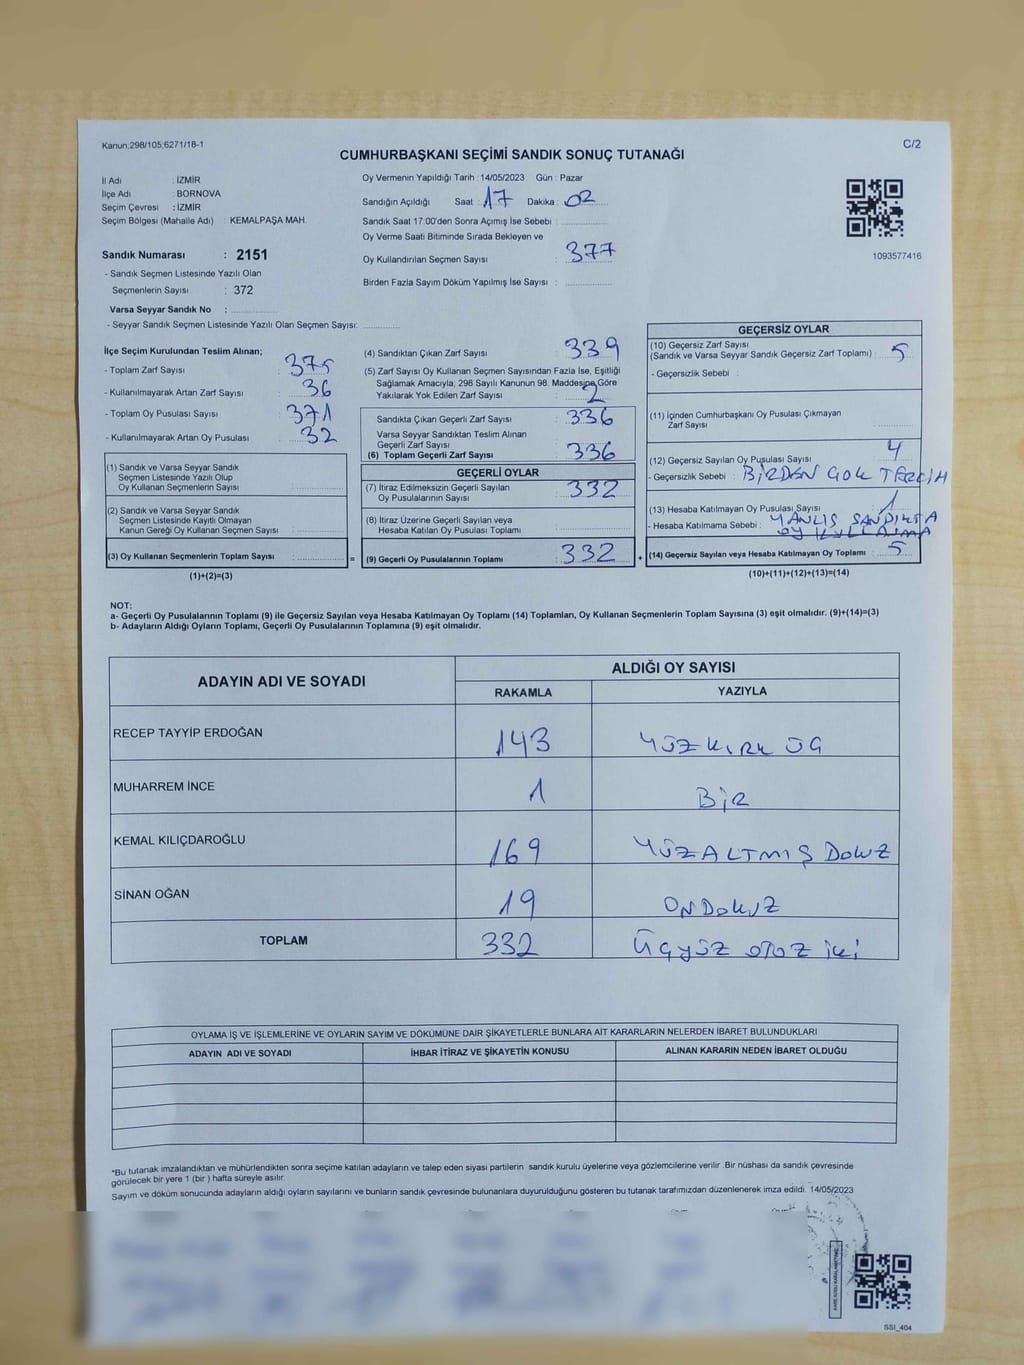 Kanun;298/105;6271/18-1
C/2
CUMHURBAŞKANI SEÇİMİ SANDIK SONUÇ TUTANAĞI
İl Adı : İZMİR
İlçe Adı : BORNOVA
Seçim Çevresi : İZMİR
Seçim Bölgesi (Mahalle Adı) : KEMALPAŞA MAH.
Sandık Numarası : 2151
- Sandık Seçmen Listesinde Yazılı Olan
Seçmenlerin Sayısı : 372
Varsa Seyyar Sandık No :
- Seyyar Sandık Seçmen Listesinde Yazılı Olan Seçmen Sayısı:
Oy Vermenin Yapıldığı Tarih : 14/05/2023 Gün : Pazar
Sandığın Açıldığı Saat : 17 Dakika : 02
Sandık Saat 17.00'den Sonra Açımış İse Sebebi :
Oy Verme Saati Bitiminde Sırada Bekleyen ve
Oy Kullandırılan Seçmen Sayısı : 377
Birden Fazla Sayım Döküm Yapılmış İse Sayısı :
1093577416
İlçe Seçim Kurulundan Teslim Alınan;
- Toplam Zarf Sayısı : 375
- Kullanılmayarak Artan Zarf Sayısı : 36
- Toplam Oy Pusulası Sayısı : 371
- Kullanılmayarak Artan Oy Pusulası : 32
(1) Sandık ve Varsa Seyyar Sandık
Seçmen Listesinde Yazılı Olup
Oy Kullanan Seçmenlerin Sayısı :
(2) Sandık ve Varsa Seyyar Sandık
Seçmen Listesinde Kayıtlı Olmayan
Kanun Gereği Oy Kullanan Seçmen Sayısı :
(3) Oy Kullanan Seçmenlerin Toplam Sayısı : =
(1)+(2)=(3)
(4) Sandıktan Çıkan Zarf Sayısı : 339
(5) Zarf Sayısı Oy Kullanan Seçmen Sayısından Fazla İse, Eşitliği
Sağlamak Amacıyla, 298 Sayılı Kanunun 98. Maddesine Göre
Yakılarak Yok Edilen Zarf Sayısı : 2
Sandıkta Çıkan Geçerli Zarf Sayısı : 336
Varsa Seyyar Sandıktan Teslim Alınan
Geçerli Zarf Sayısı :
(6) Toplam Geçerli Zarf Sayısı : 336
GEÇERLİ OYLAR
(7) İtiraz Edilmeksizin Geçerli Sayılan
Oy Pusulalarının Sayısı : 332
(8) İtiraz Üzerine Geçerli Sayılan veya
Hesaba Katılan Oy Pusulası Toplamı :
(9) Geçerli Oy Pusulalarının Toplamı : 332 +
GEÇERSİZ OYLAR
(10) Geçersiz Zarf Sayısı
(Sandık ve Varsa Seyyar Sandık Geçersiz Zarf Toplamı) : 5
- Geçersizlik Sebebi :
(11) İçinden Cumhurbaşkanı Oy Pusulası Çıkmayan
Zarf Sayısı :
(12) Geçersiz Sayılan Oy Pusulası Sayısı : 4
- Geçersizlik Sebebi : BİRDEN ÇOK TERCİH
(13) Hesaba Katılmayan Oy Pusulası Sayısı : 1
- Hesaba Katılmama Sebebi : YANLIŞ SANDIKTA
OY KULLANMA
(14) Geçersiz Sayılan veya Hesaba Katılmayan Oy Toplamı : 5
(10)+(11)+(12)+(13)=(14)
NOT:
a- Geçerli Oy Pusulalarının Toplamı (9) ile Geçersiz Sayılan veya Hesaba Katılmayan Oy Toplamı (14) Toplamları, Oy Kullanan Seçmenlerin Toplam Sayısına (3) eşit olmalıdır. (9)+(14)=(3)
b- Adayların Aldığı Oyların Toplamı, Geçerli Oy Pusulalarının Toplamına (9) eşit olmalıdır.
ADAYIN ADI VE SOYADI ALDIĞI OY SAYISI
RAKAMLA YAZIYLA
RECEP TAYYİP ERDOĞAN 143 YÜZ KIRK ÜÇ
MUHARREM İNCE 1 BİR
KEMAL KILIÇDAROĞLU 169 YÜZALTMIŞ DOKUZ
SİNAN OĞAN 19 ONDOKUZ
TOPLAM 332 ÜÇYÜZ OTUZ İKİ
OYLAMA İŞ VE İŞLEMLERİNE VE OYLARIN SAYIM VE DÖKÜMÜNE DAİR ŞİKAYETLERLE BUNLARA AİT KARARLARIN NELERDEN İBARET BULUNDUKLARI
ADAYIN ADI VE SOYADI İHBAR İTİRAZ VE ŞİKAYETİN KONUSU ALINAN KARARIN NEDEN İBARET OLDUĞU
*Bu tutanak imzalandıktan ve mühürlendikten sonra seçime katılan adayların ve talep eden siyasi partilerin sandık kurulu üyelerine veya gözlemcilerine verilir .Bir nüshası da sandık çevresinde
görülecek bir yere 1 (bir ) hafta süreyle asılır.
Sayım ve döküm sonucunda adayların aldığı oyların sayılarını ve bunların sandık çevresinde bulunanlara duyurulduğunu gösteren bu tutanak tarafımızdan düzenlenerek imza edildi. 14/05/2023
SSI_404